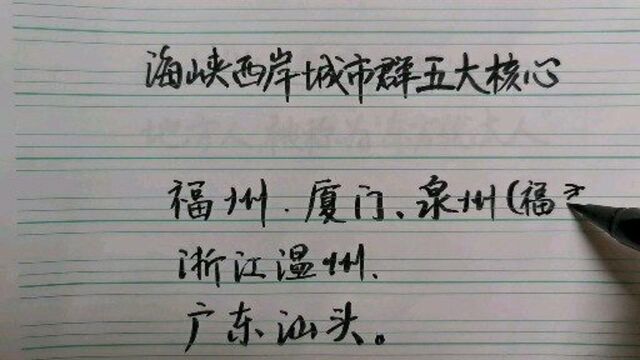 海峡西岸城市群五大核心
福州.厦门、泉州(福
浙江温州.
广东汕头。